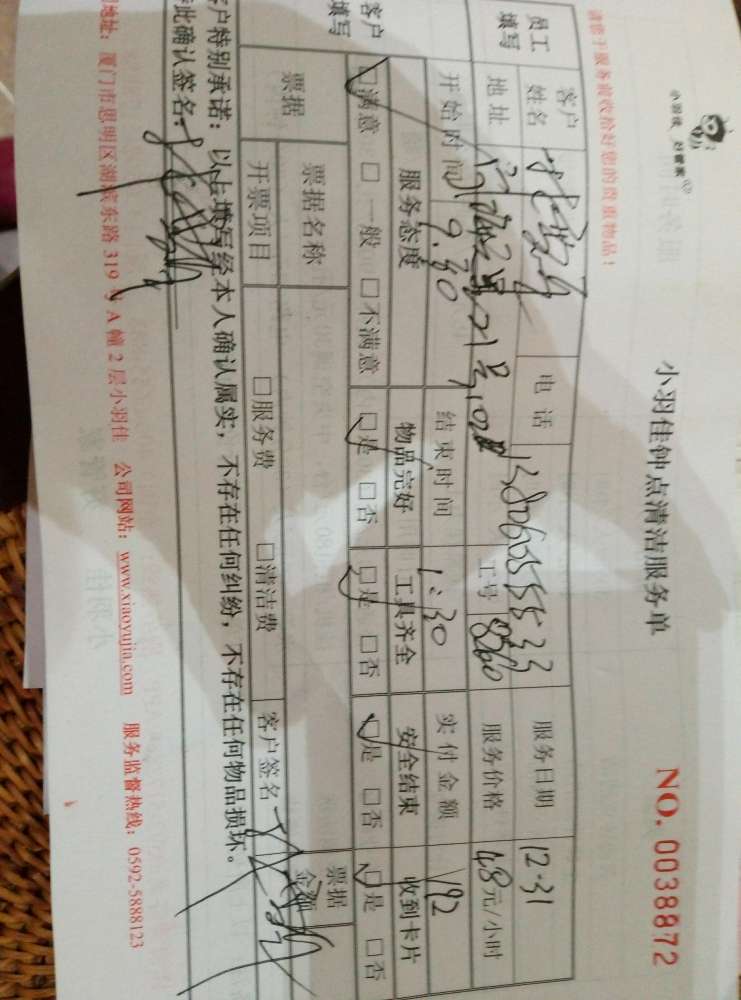 小羽佳 好管家
小羽佳钟点清洁服务单
NO. 0038872
请您于服务前收拾好您的贵重物品！
员工填写
客户姓名 电话 服务日期 12.31
地址 工号 8560 服务价格 48元/小时
开始时间 9:30 结束时间 1:30 实付金额 192
客户填写
服务态度 物品完好 工具齐全 安全结束 收到卡片
☑满意 □一般 □不满意 ☑是 □否 ☑是 □否 ☑是 □否 ☑是 □否
票据 票据名称 票据金额
开票项目 □服务费 □清洁费 客户签名
客户特别承诺：以上填写经本人确认属实，不存在任何纠纷，不存在任何物品损坏。
此确认签名：
地址：厦门市思明区湖滨东路319号A幢2层小羽佳 公司网站：www.xiaoyujia.com 服务监督热线：0592-5888123